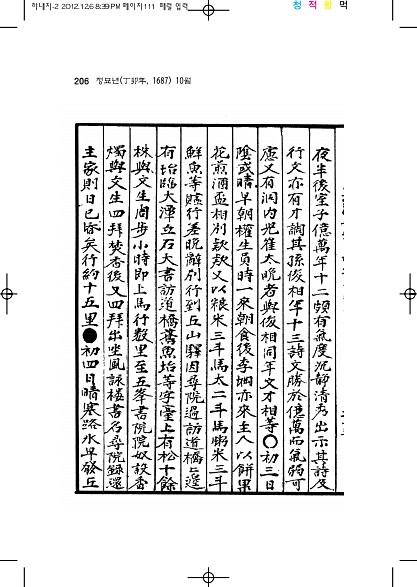 하내지-2 2012.12.6 8:39 PM 페이지111 제광 인쇄
청 적 황 먹
206 정묘년(丁卯年, 1687) 10월
夜半後室子億萬年十二頗有氣度沉靜清秀出示其詩及
行文亦有才調其孫後相年十三詩文勝於億萬而氣弱可
慮又有洞內兒崔太晩者與後相同年文才相等○初三日
陰或晴早朝權生員時一來朝食後李烱亦來主人以餠果
花煎酒盃相別款款又以粮米三斗馬太二斗馬粥米三斗
鮮魚等贐行差晩辭別行到丘山驛因尋院過訪道橋橋邊
有坮臨大潭立石大書訪道橋舊魚坮等字臺上有松十餘
株與文生問步小時卽上馬行數里至五峯書院院奴設香
燭與文生四拜焚香後又四拜出坐風詠樓書名尋院錄還
主家則日已昏矣行約十五里●初四日晴寒路水早發丘